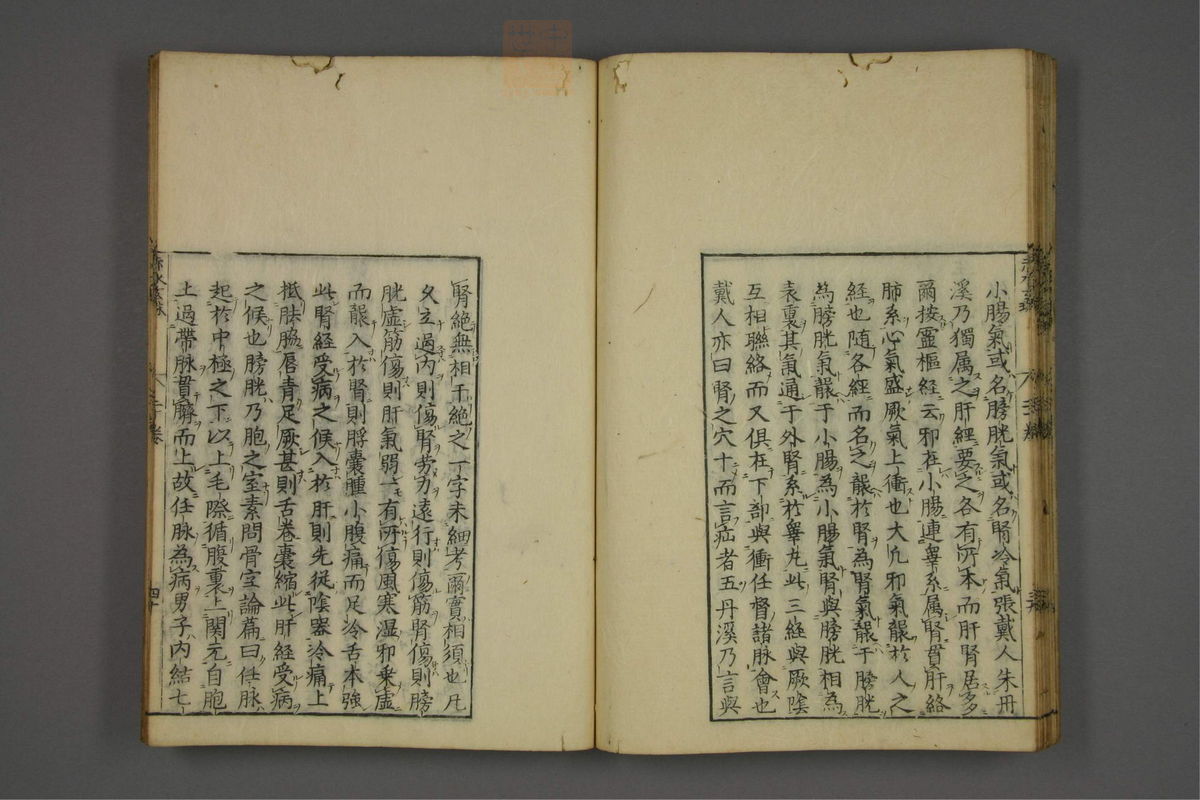 小腸氣或名膀胱氣或名腎冷氣張戴人朱丹
溪乃獨属之肝經要之各有所本而肝腎居多
爾按靈樞經云邪在小腸連睾系属腎貫肝絡
肺系心氣盛厥氣上衝也大凡邪氣襲於人之
經也随各經而名之襲於腎為腎氣襲于膀胱
為膀胱氣襲于小腸為小腸氣腎與膀胱相為
表裏其氣通于外腎系於睾丸此三經與厥陰
互相聯絡而又俱在下部與衝任督諸脉會也
戴人亦曰腎之穴十而言疝者五丹溪乃言與
腎絕無相干絕之一字未細考爾實相須也凡
久立過內則傷腎劳力遠行則傷筋腎傷則膀
胱虚筋傷則肝氣弱一有所傷風寒湿邪乗虚
而襲入於腎則脬囊腫小腹痛而足冷舌本強
此腎經受病之候入於肝則先従陰器冷痛上
抵胠脇唇青足厥甚則舌卷囊縮此肝經受病
之候也膀胱乃胞之室素問骨空論篇曰任脉
起於中極之下以上毛際循腹裏上関元自胞
上過帶脉貫臍而上故任脉為病男子內結七